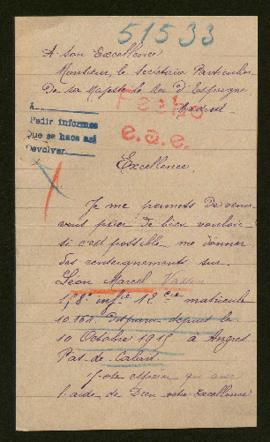 51533
A son Excellence
Monsieur le Secrétaire Particulier
De sa Majesté le Roi d'Espagne
Madrid
Fecho
e.a.e.
A
Pedir informes
Que se hace así
Devolver
Excellence,
Je me permets de venir
vous prier de bien vouloir
si c'est possible me donner
des renseignements sur
Léon Marcel
178e infie 12 cie matricule
10.164 disparu depuis le
10 Octobre 1915 à Angres
Pas-de-Calais.
J'ose espérer qu'avec
l'aide de Dieu votre Excellence